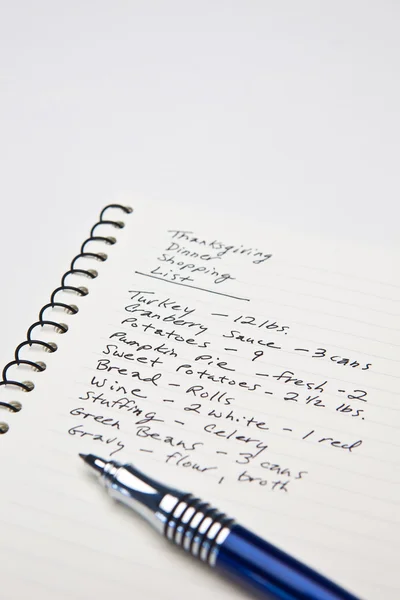 Thanksgiving
Dinner
Shopping
List
Turkey - 12 lbs.
Cranberry Sauce - 3 cans
Potatoes - 9
Pumpkin Pie - fresh - 2
Sweet Potatoes - 2 1/2 lbs.
Bread - Rolls
Wine - 2 white - 1 red
Stuffing - Celery
Green Beans - 3 cans
Gravy - flour, broth